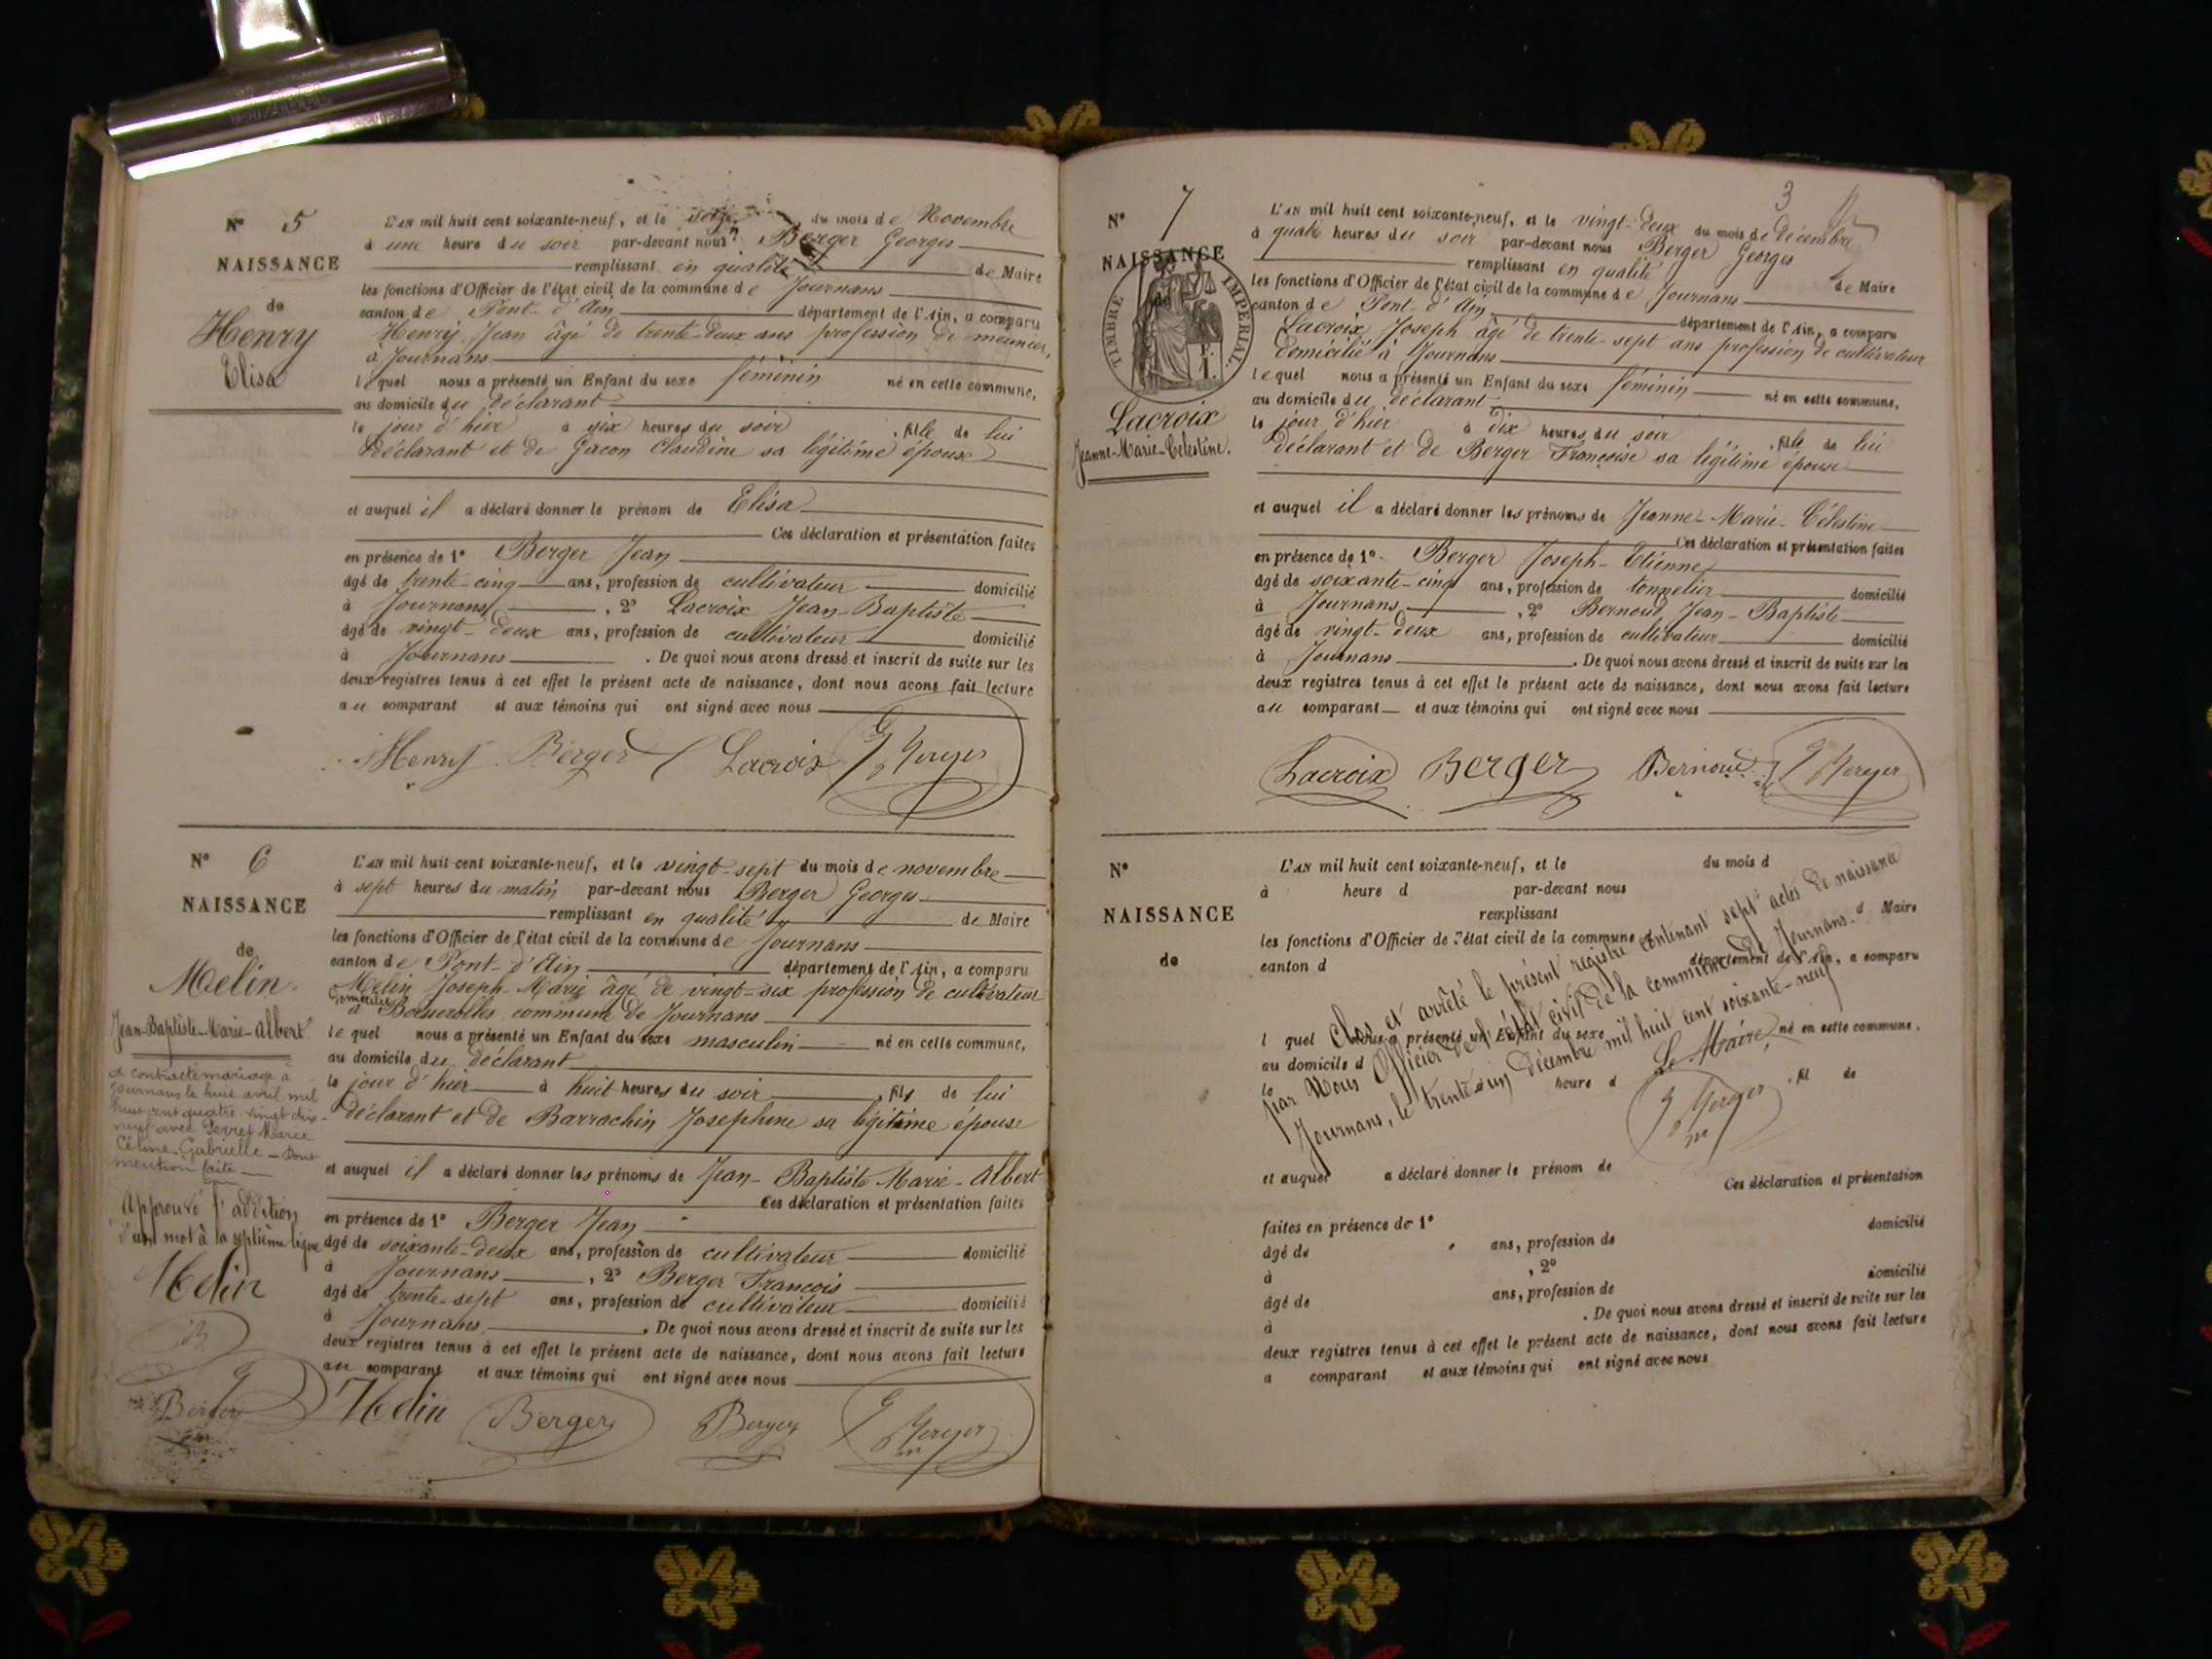 N° 5
NAISSANCE
de
Henry
Elisa
L'AN mil huit cent soixante-neuf, et le seize du mois de Novembre
à une heure du soir par-devant nous Berger Georges
remplissant en qualité de Maire
les fonctions d'Officier de l'état civil de la commune de Journans
canton de Pont-d'Ain département de l'Ain, a comparu
Henry Jean âgé de trente-deux ans profession de meunier,
à Journans
lequel nous a présenté un Enfant du sexe féminin né en cette commune,
au domicile du déclarant
le jour d'hier à six heures du soir , fille de lui
déclarant et de Gacon Claudine sa légitime épouse
et auquel il a déclaré donner le prénom de Elisa
Ces déclaration et présentation faites
en présence de 1° Berger Jean
âgé de trente-cinq ans, profession de cultivateur domicilié
à Journans , 2° Lacroix Jean-Baptiste
âgé de vingt-deux ans, profession de cultivateur domicilié
à Journans . De quoi nous avons dressé et inscrit de suite sur les
deux registres tenus à cet effet le présent acte de naissance, dont nous avons fait lecture
au comparant et aux témoins qui ont signé avec nous
Henry Berger Lacroix G Berger
N° 6
NAISSANCE
de
Melin
Jean-Baptiste-Marie-Albert
a contracté mariage à
Journans le huit avril mil
huit cent quatre-vingt dix-
neuf avec Perret Marie
Céline Gabrielle — Dont
mention faite —
Approuvé l'addition
d'un mot à la septième ligne
Melin
B
Berger
L'AN mil huit cent soixante-neuf, et le vingt-sept du mois de novembre
à sept heures du matin par-devant nous Berger Georges
remplissant en qualité de Maire
les fonctions d'Officier de l'état civil de la commune de Journans
canton de Pont-d'Ain département de l'Ain, a comparu
Melin Joseph-Marie âgé de vingt-six profession de cultivateur
domicilié
à commune de Journans
lequel nous a présenté un Enfant du sexe masculin né en cette commune,
au domicile du déclarant
le jour d'hier à huit heures du soir , fils de lui
déclarant et de Barrachin Josephine sa légitime épouse
et auquel il a déclaré donner les prénoms de Jean-Baptiste Marie-Albert
Ces déclaration et présentation faites
en présence de 1° Berger Jean
âgé de soixante-deux ans, profession de cultivateur domicilié
à Journans , 2° Berger François
âgé de trente-sept ans, profession de cultivateur domicilié
à Journans . De quoi nous avons dressé et inscrit de suite sur les
deux registres tenus à cet effet le présent acte de naissance, dont nous avons fait lecture
au comparant et aux témoins qui ont signé avec nous
Melin Berger Berger G Berger
3
N° 7
NAISSANCE
de
TIMBRE IMPERIAL
1 F.
Lacroix
Jeanne-Marie-Celestine.
L'AN mil huit cent soixante-neuf, et le vingt-deux du mois de décembre
à quatre heures du soir par-devant nous Berger Georges
remplissant en qualité de Maire
les fonctions d'Officier de l'état civil de la commune de Journans
canton de Pont-d'Ain département de l'Ain, a comparu
Lacroix Joseph âgé de trente-sept ans profession de cultivateur
domicilié à Journans
lequel nous a présenté un Enfant du sexe féminin né en cette commune,
au domicile du déclarant
le jour d'hier à dix heures du soir , fille de lui
déclarant et de Berger Françoise sa légitime épouse
et auquel il a déclaré donner les prénoms de Jeanne-Marie-Célestine
Ces déclaration et présentation faites
en présence de 1° Berger Joseph-Etienne
âgé de soixante-cinq ans, profession de tonnelier domicilié
à Journans , 2° Bernoud Jean-Baptiste
âgé de vingt-deux ans, profession de cultivateur domicilié
à Journans . De quoi nous avons dressé et inscrit de suite sur les
deux registres tenus à cet effet le présent acte de naissance, dont nous avons fait lecture
au comparant et aux témoins qui ont signé avec nous
Lacroix Berger Bernoud G Berger
N°
NAISSANCE
de
L'AN mil huit cent soixante-neuf, et le du mois d
à heure d par-devant nous
remplissant d Maire
les fonctions d'Officier de l'état civil de la commune d
canton d département de l'Ain, a comparu
l quel nous a présenté un Enfant du sexe né en cette commune,
au domicile d
le heure d , fil de
Clos et arrêté le présent registre contenant sept actes de naissance
par Nous Officier de l'état civil de la commune de Journans.
Journans, le trente un décembre mil huit cent soixante-neuf
Le Maire,
G Berger
et auquel a déclaré donner le prénom de
Ces déclaration et présentation
faites en présence de 1° domicilié
âgé de ans, profession de
à , 2°
âgé de ans, profession de domicilié
à . De quoi nous avons dressé et inscrit de suite sur les
deux registres tenus à cet effet le présent acte de naissance, dont nous avons fait lecture
a comparant et aux témoins qui ont signé avec nous